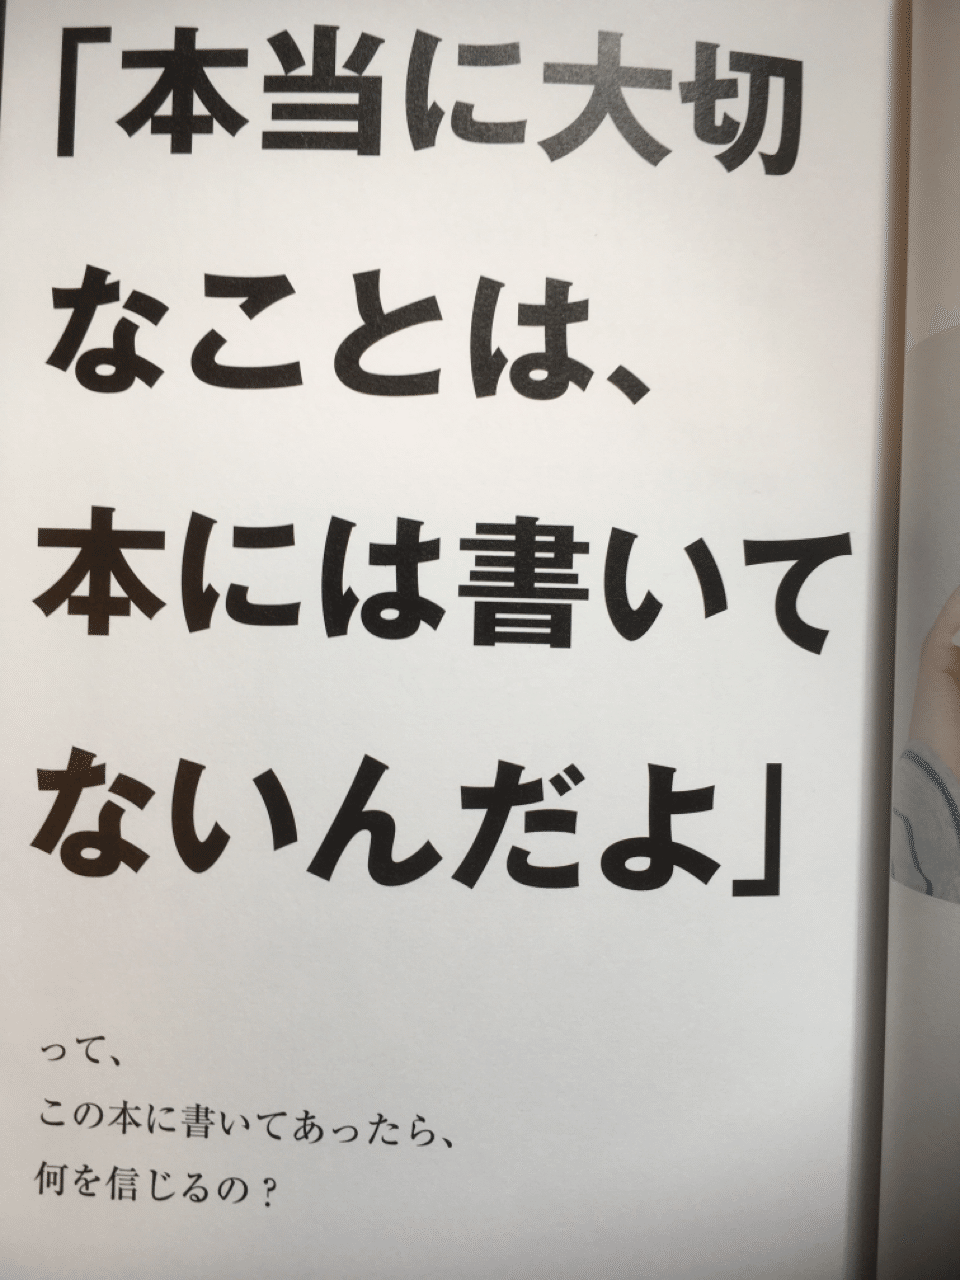 「本当に大切
なことは、
本には書いて
ないんだよ」
って、
この本に書いてあったら、
何を信じるの？